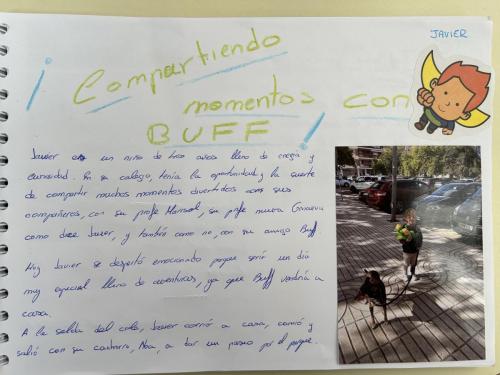 JAVIER
¡Compartiendo
momentos con
BUFF!
Javier es un niño de tres años lleno de energía y
curiosidad. En su colegio, tenía la oportunidad y la suerte
de compartir muchos momentos divertidos con sus
compañeros, con su profe Manuel, su profe nueva
como dice Javier, y también como no, con su amigo Buff.
Hoy Javier se despertó emocionado porque sería un día
muy especial lleno de aventuras, ya que Buff vendría a
casa.
A la salida del cole, Javier corrió a casa, comió y
salió con su cachorro, Noa, a dar un paseo por el parque.